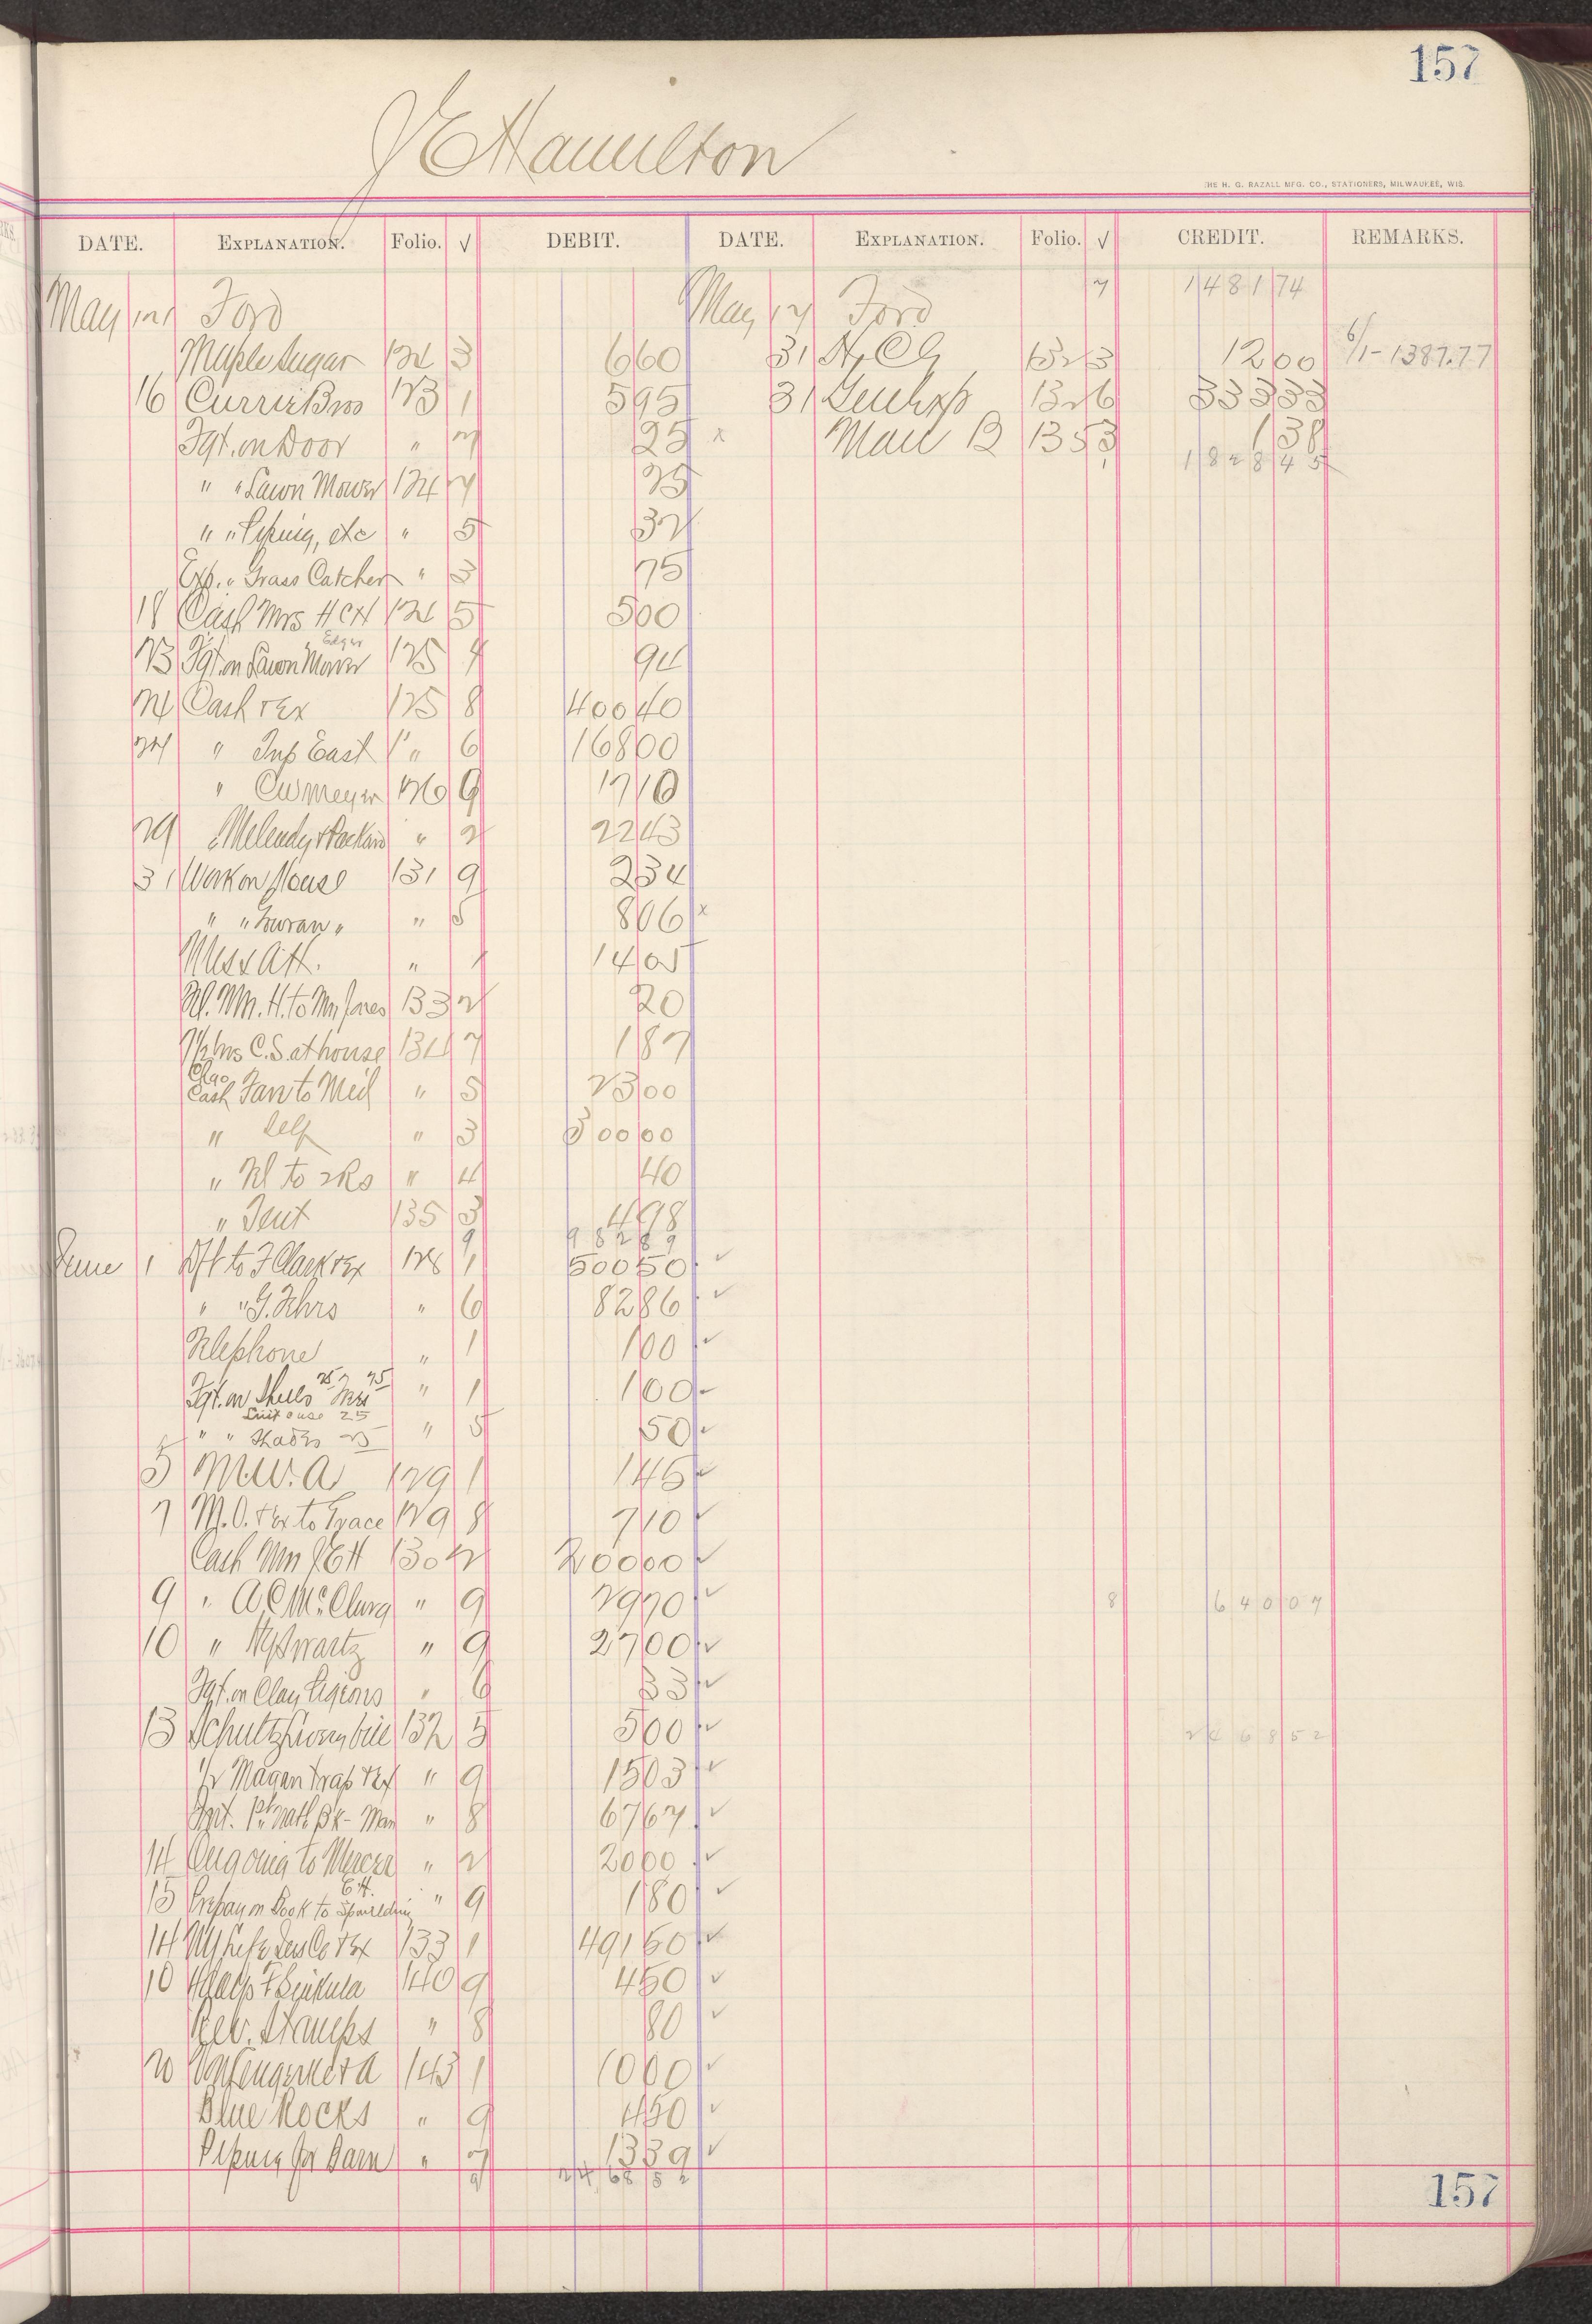 157
J E Hamilton
THE H. G. RAZALL MFG. CO., STATIONERS, MILWAUKEE, WIS.
DATE. EXPLANATION. Folio. √ DEBIT. DATE. EXPLANATION. Folio. √ CREDIT. REMARKS.
May 12 Ford May 12 Ford 7 1481 74
Maple Sugar 124 3 6 60 31 H, C 132 3 12 00 6/1 - 1387.77
16 Currie Bros 123 1 5 95 31 Genl Exp 132 6 333 33
Fgt. on Door " 7 25 x Man B 135 3 1 38
1828 45
" " Lawn Mower 124 7 25
" " Piping, etc " 5 32
Exp. " Grass Catcher " 3 75
18 Cash Mrs HCH 124 5 5 00
23 Fgt. on Lawn Mower Edger 125 4 94
24 Cash & Ex 125 8 400 40
24 " Trip East " 6 168 00
" CW Meyer 126 9 17 10
29 " Melendy & Packard " 2 22 43
31 Work on House 131 9 2 34
" " " " 5 8 06 x
" 1 14 05
Tel. Mr. H. to Mr Jones 133 2 20
7½ hrs C.S. at house 134 7 1 87
Chgo
Cash Fan to Meil " 5 23 00
" Self " 3 300 00
" Tel to 2Rs " 4 40
" Tent 135 3 4 98
9 982 89
June 1 Dft to F Clark & Ex 128 1 500 50 ✓
" " G. Fehrs " 6 82 86 ✓
Telephone " 1 1 00 ✓
Fgt. on Shells 25 75 " 1 1 00 ✓
Suit case 25
" " Shades 25 " 5 50 ✓
5 M.W.A 129 1 1 45 ✓
7 M.O. & Ex to Grace 129 8 7 10 ✓
Cash Mrs J E H 130 2 200 00 ✓
9 " A C McClurg " 9 29 70 ✓ 8 640 07
10 " Swartz " 9 27 00 ✓
Fgt. on Clay Pigeons " 6 33 ✓
13 Schultz Livery bill 132 5 5 00 ✓ 2468 52
½ Magan trap & Ex " 9 15 03 ✓
1st Natl Bk - Man " 8 67 67 ✓
14 to Mercer " 2 20 00 ✓
15 Prepay on Book to Spaulding E.H. " 9 1 80 ✓
14 NY Life Ins Co & Ex 133 1 491 60 ✓
10 140 9 4 50 ✓
Rev. Stamps " 8 80 ✓
20 143 1 10 00 ✓
Blue Rocks " 9 4 50 ✓
Piping for Barn " 7 13 39 ✓
9 2468 52
157